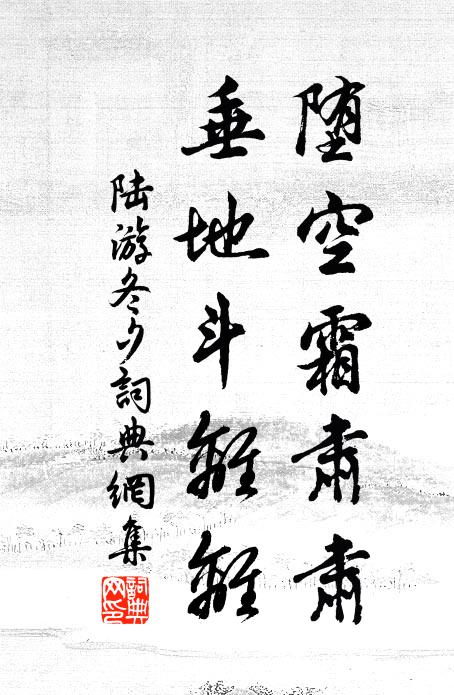 堕空霜肅肅
垂地斗離離
陆游冬夕詞典網集
詞典网印